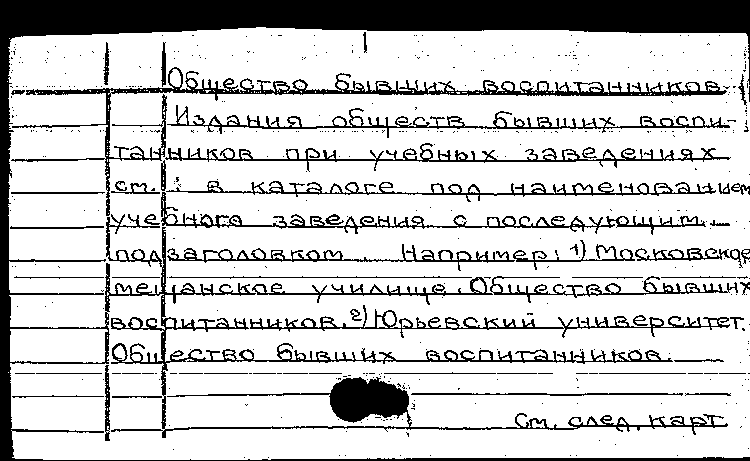 Общество бывших воспитанников
Издания обществ бывших воспи-
танников при учебных заведениях
см.: в каталоге под наименованием
учебного заведения с последующим
подзаголовком. Например: 1) Московское
мещанское училище. Общество бывших
воспитанников. 2) Юрьевский университет.
Общество бывших воспитанников.
См. след. карт.